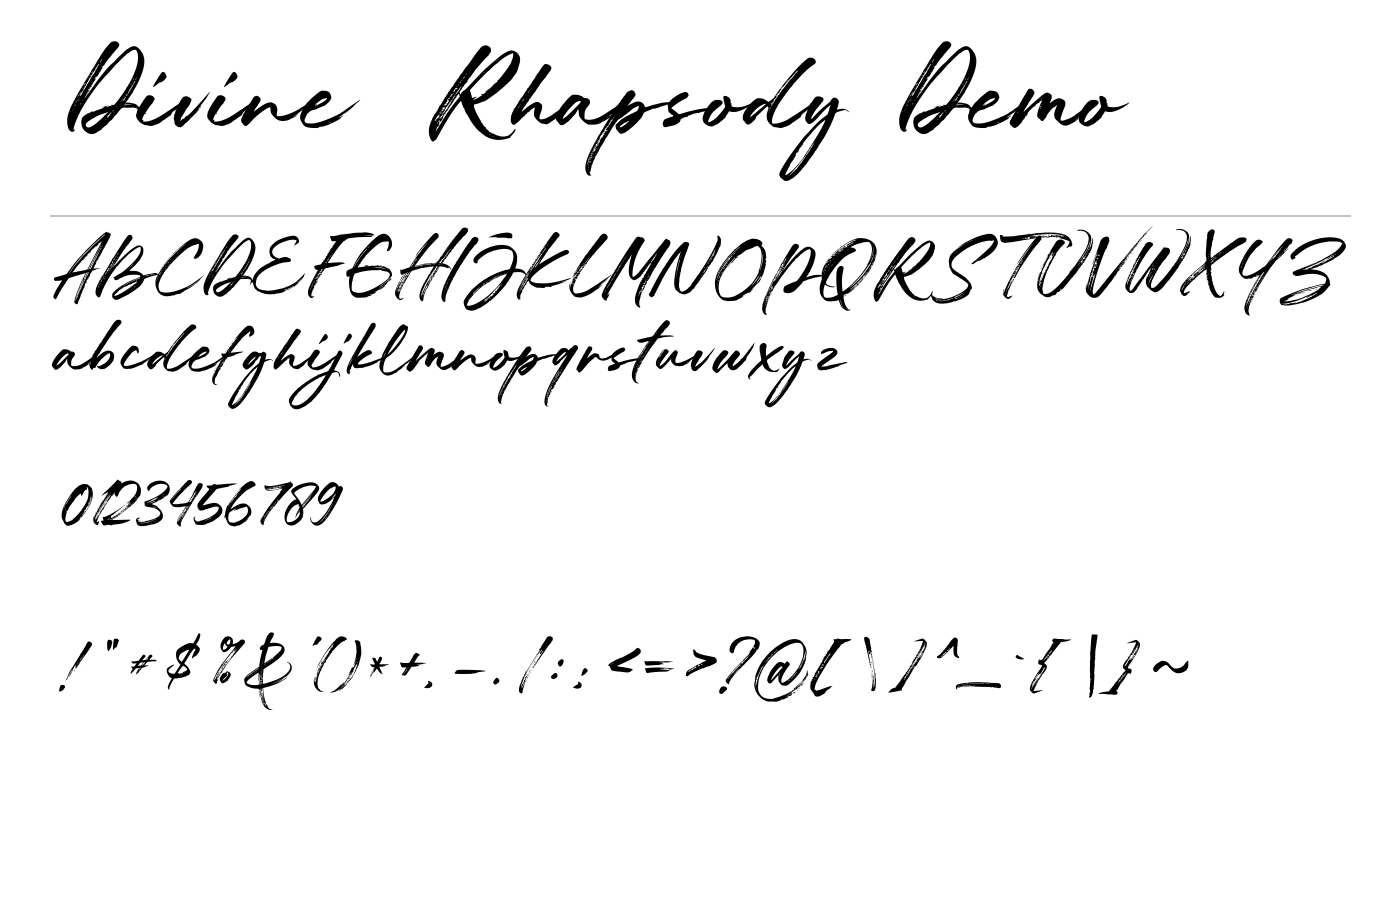 Divine Rhapsody Demo
ABCDEFGHIJKLMNOPQRSTUVWXYZ
abcdefghijklmnopqrstuvwxyz
0123456789
!"#$%&'()*+,-./:;<=>?@[\]^_`{|}~